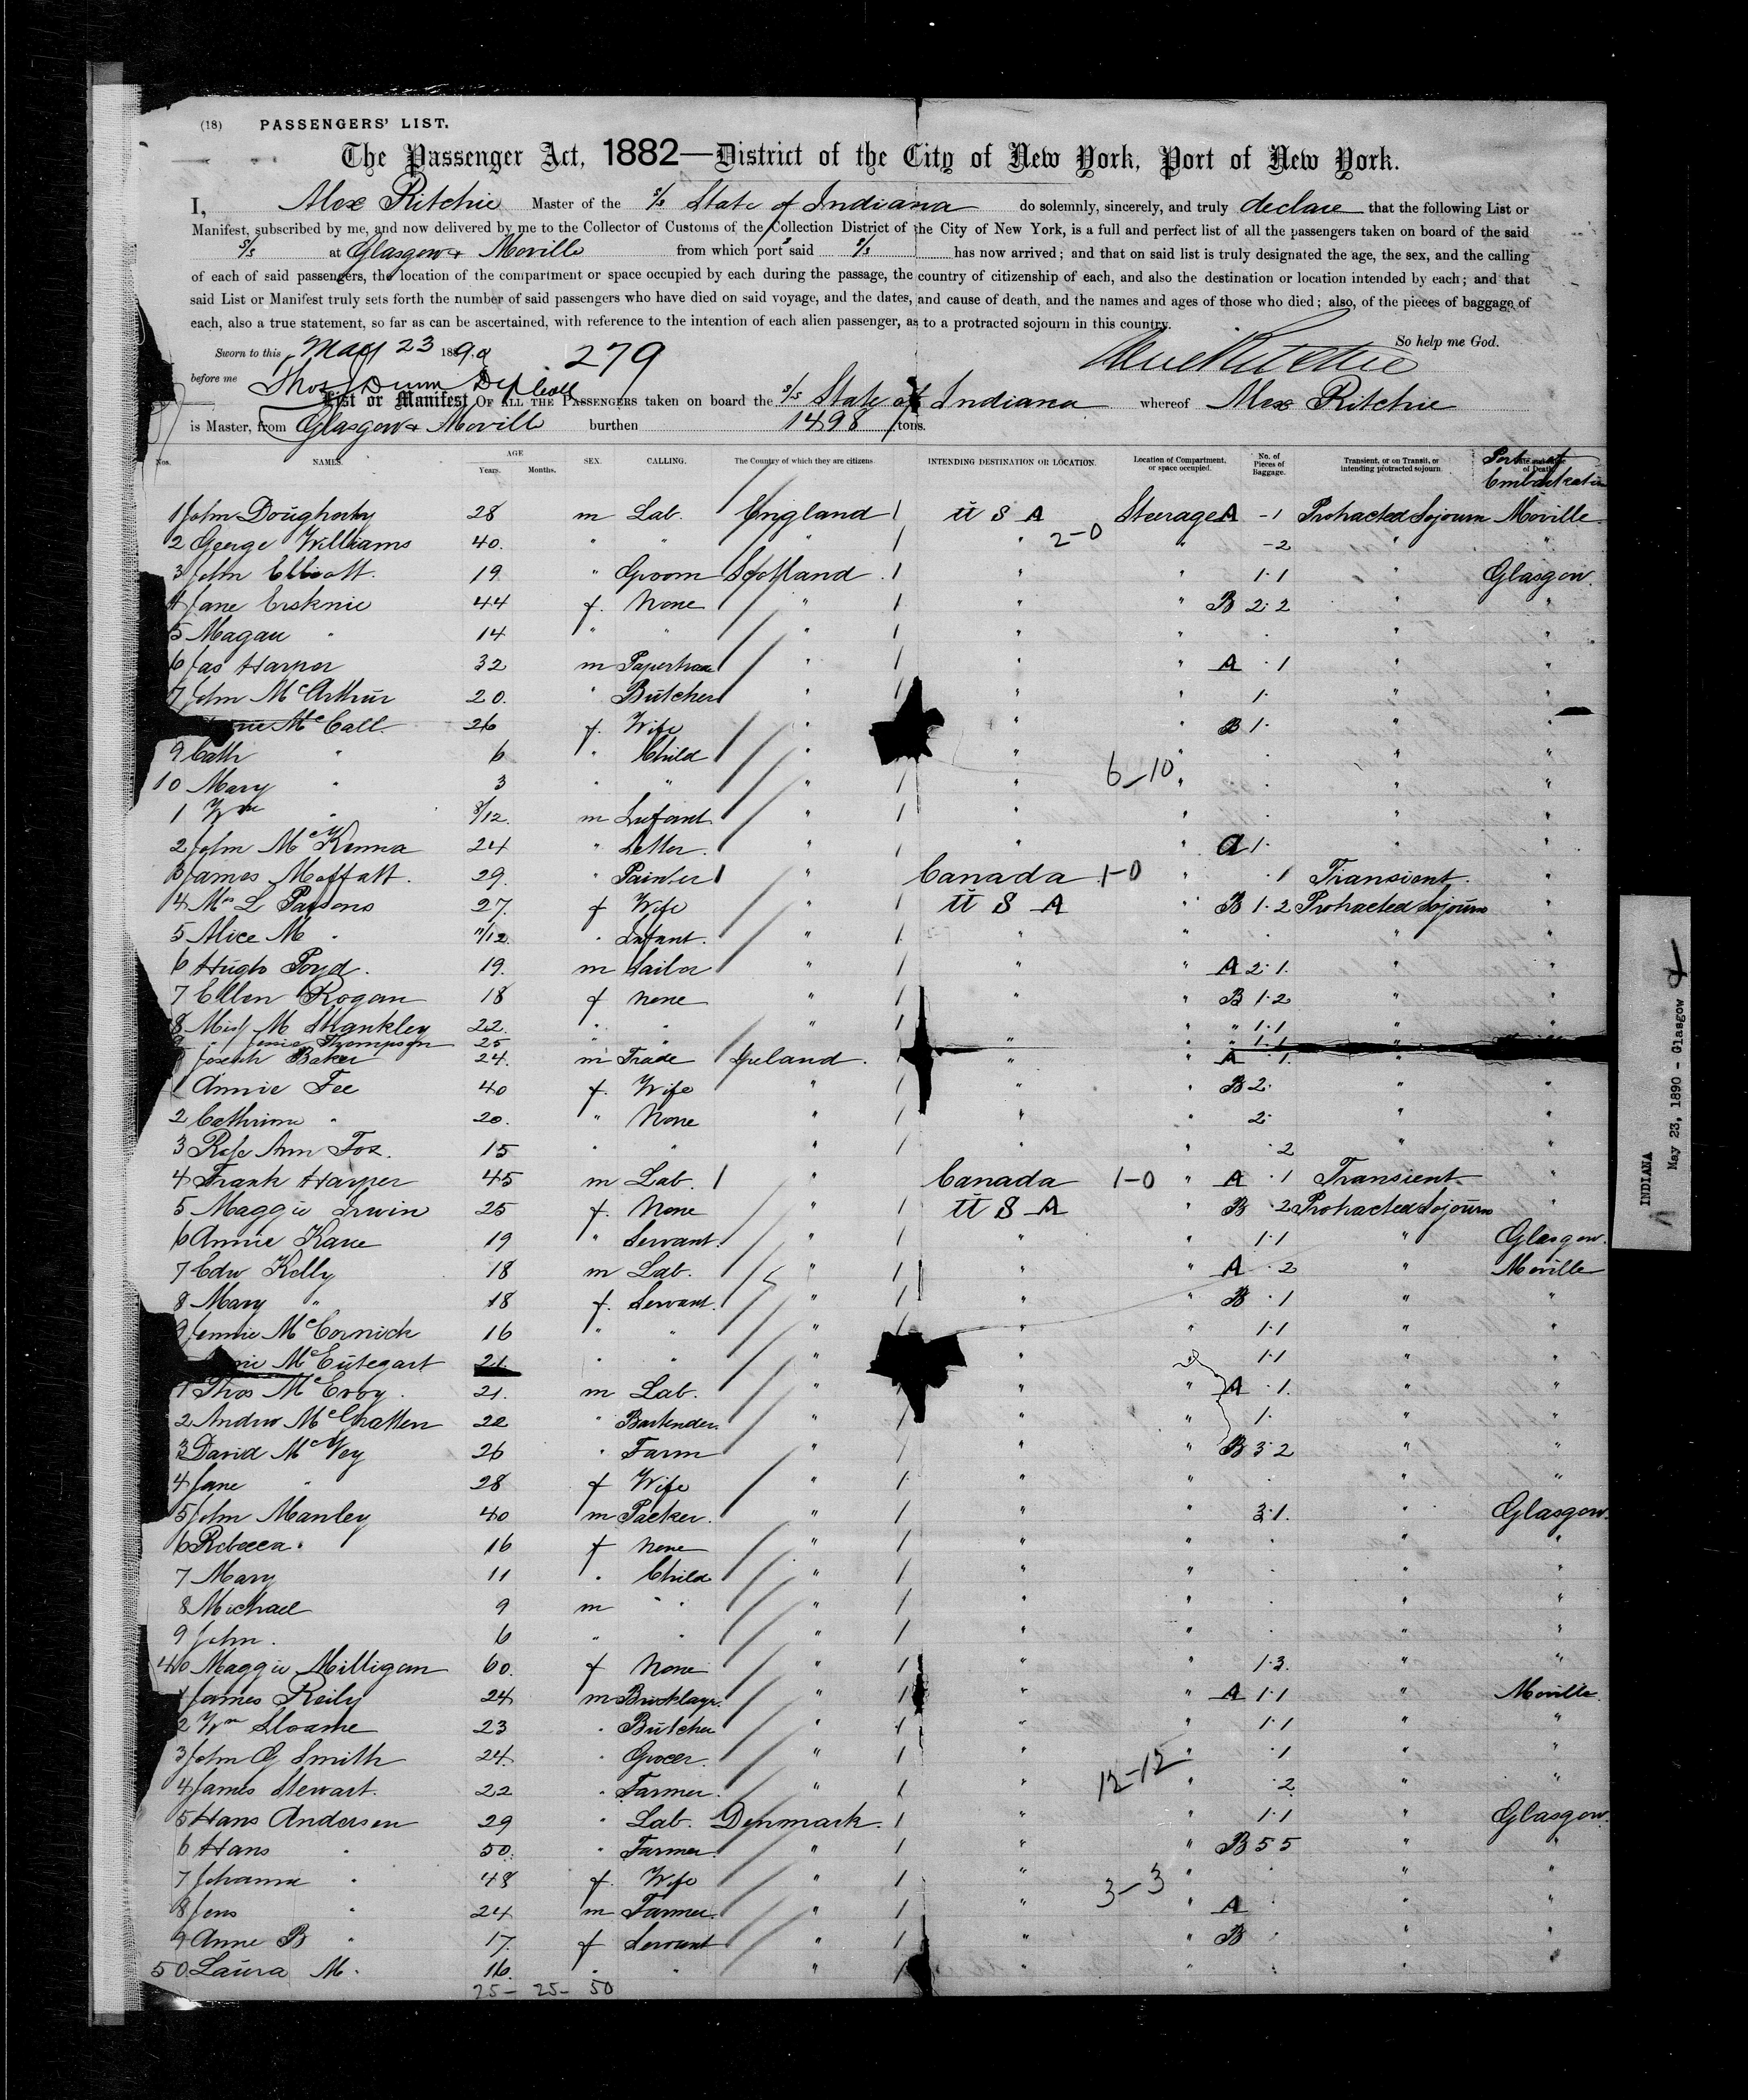 (18) PASSENGERS' LIST.
The Passenger Act, 1882—District of the City of New York, Port of New York.
I, Alex Ritchie Master of the s/s State of Indiana do solemnly, sincerely, and truly declare that the following List or
Manifest, subscribed by me, and now delivered by me to the Collector of Customs of the Collection District of the City of New York, is a full and perfect list of all the passengers taken on board of the said
s/s at Glasgow & Moville from which port said s/s has now arrived; and that on said list is truly designated the age, the sex, and the calling
of each of said passengers, the location of the compartment or space occupied by each during the passage, the country of citizenship of each, and also the destination or location intended by each; and that
said List or Manifest truly sets forth the number of said passengers who have died on said voyage, and the dates, and cause of death, and the names and ages of those who died; also, of the pieces of baggage of
each, also a true statement, so far as can be ascertained, with reference to the intention of each alien passenger, as to a protracted sojourn in this country.
So help me God.
Sworn to this May 23 1890 279
before me Thos Dunn
List or Manifest OF ALL THE PASSENGERS taken on board the s/s State of Indiana whereof Alex Ritchie
is Master, from Glasgow & Moville burthen 1498 tons.
Nos. NAMES. AGE Years. Months. SEX. CALLING. The Country of which they are citizens. INTENDING DESTINATION OR LOCATION. Location of Compartment, or space occupied. No. of Pieces of Baggage. Transient, or on Transit, or intending protracted sojourn. Port of Embarkation
1 John Dougherty 28 m Lab. England 1 U S A Steerage A -1 Protracted Sojourn Moville
2 George Williams 40. " " " 1 " 2-0 " -2 " "
3 John Elliott. 19 " Groom Scotland 1 " " 1·1 " Glasgow.
4 Jane Erskine 44 f. None " 1 " " B 2·2 " "
5 Magau " 14 " " " 1 " " " "
6 Jas Harper 32 m " 1 " " A ·1 " "
7 John McArthur 20. " Butcher " 1 " " 1· " "
McCall 26 f. Wife " " " B 1· "
9 Cath " 6 " Child " " " " "
10 Mary " 3 " " " 1 " 6-10 " " "
1 Wm " 8/12 m Infant. " 1 " " " "
2 John McKenna 24 " " 1 " " A 1· " "
3 James Moffatt. 29. " Painter 1 " Canada 1-0 " ·1 Transient. "
4 Mrs L Parsons 27. f Wife " 1 U S A " B 1·2 Protracted Sojourn "
5 Alice M " 11/12. " Infant. " 1 " " " "
6 Hugh 19. m Sailor " 1 " " A 2·1. " "
7 Ellen Rogan 18 f none " 1 " " B 1·2 " "
8 Miss M Shankley 22. " " " 1 " " 1·1 " "
Thompson 25 " " " " 1·1
Joseph Baker 24. m Trade Ireland. " " A ·1. "
1 Annie Fee 40 f. Wife " 1 " " B 2· " "
2 Cathrine " 20. " None " 1 " " 2· " "
3 Rose Ann Fox. 15 " " " 1 " " ·2 " "
4 Frank Harper 45 m Lab. 1 " Canada 1-0 " A ·1 Transient "
5 Maggie Irwin 25 f. None " 1 U S A " B ·2 Protracted Sojourn "
6 Annie Kane 19 " Servant. " 1 " " 1·1 " Glasgow.
7 Edw Kelly 18 m Lab. " 1 " " A ·2 " Moville
8 Mary " 18 f. Servant. " 1 " " B ·1 " "
9 Jennie McCormick 16 " " " 1 " " 1·1 " "
McEntegart 21. " " " " " 1·1 " "
1 Thos McEvoy. 21. m Lab. " " " A ·1. " "
2 Andrw McGratten 22 " Bartender. " 1 " " 1· " "
3 David McVey 26 " Farm " 1 " " B 3·2 " "
4 Jane " 28 f Wife " 1 " " " "
5 John Manley 40 m Packer. " 1 " " 3·1. " Glasgow.
6 Rebecca " 16 f none " 1 " " " "
7 Mary 11 " Child " 1 " " " "
8 Michael 9 m " " 1 " " " "
9 John. 6 " " " 1 " " " "
40 Maggie Milligan 60. f None " 1 " " 1·3. " "
1 James Reily 24 m Bricklayr. " 1 " " A 1·1 " Moville.
2 Wm Sloane 23 " Butcher " 1 " " 1·1 " "
3 John G Smith 24. " Grocer. " 1 " " ·1 " "
4 James Stewart. 22 " Farmer. " 1 " 12-12 " ·2 " "
5 Hans Andersen 29 " Lab. Denmark. 1 " " 1·1 " Glasgow.
6 Hans " 50. " Farmer. " 1 " " B 5 5 " "
7 Johanna " 48 f. Wife " 1 " 3-3 " " "
8 Jens " 24 m Farmer. " 1 " " A " "
9 Anne B " 17. f Servant " 1 " " B " "
50 Laura M. 16. " " " 1 " " " "
25- 25- 50
INDIANA
May 23, 1890 - Glasgow